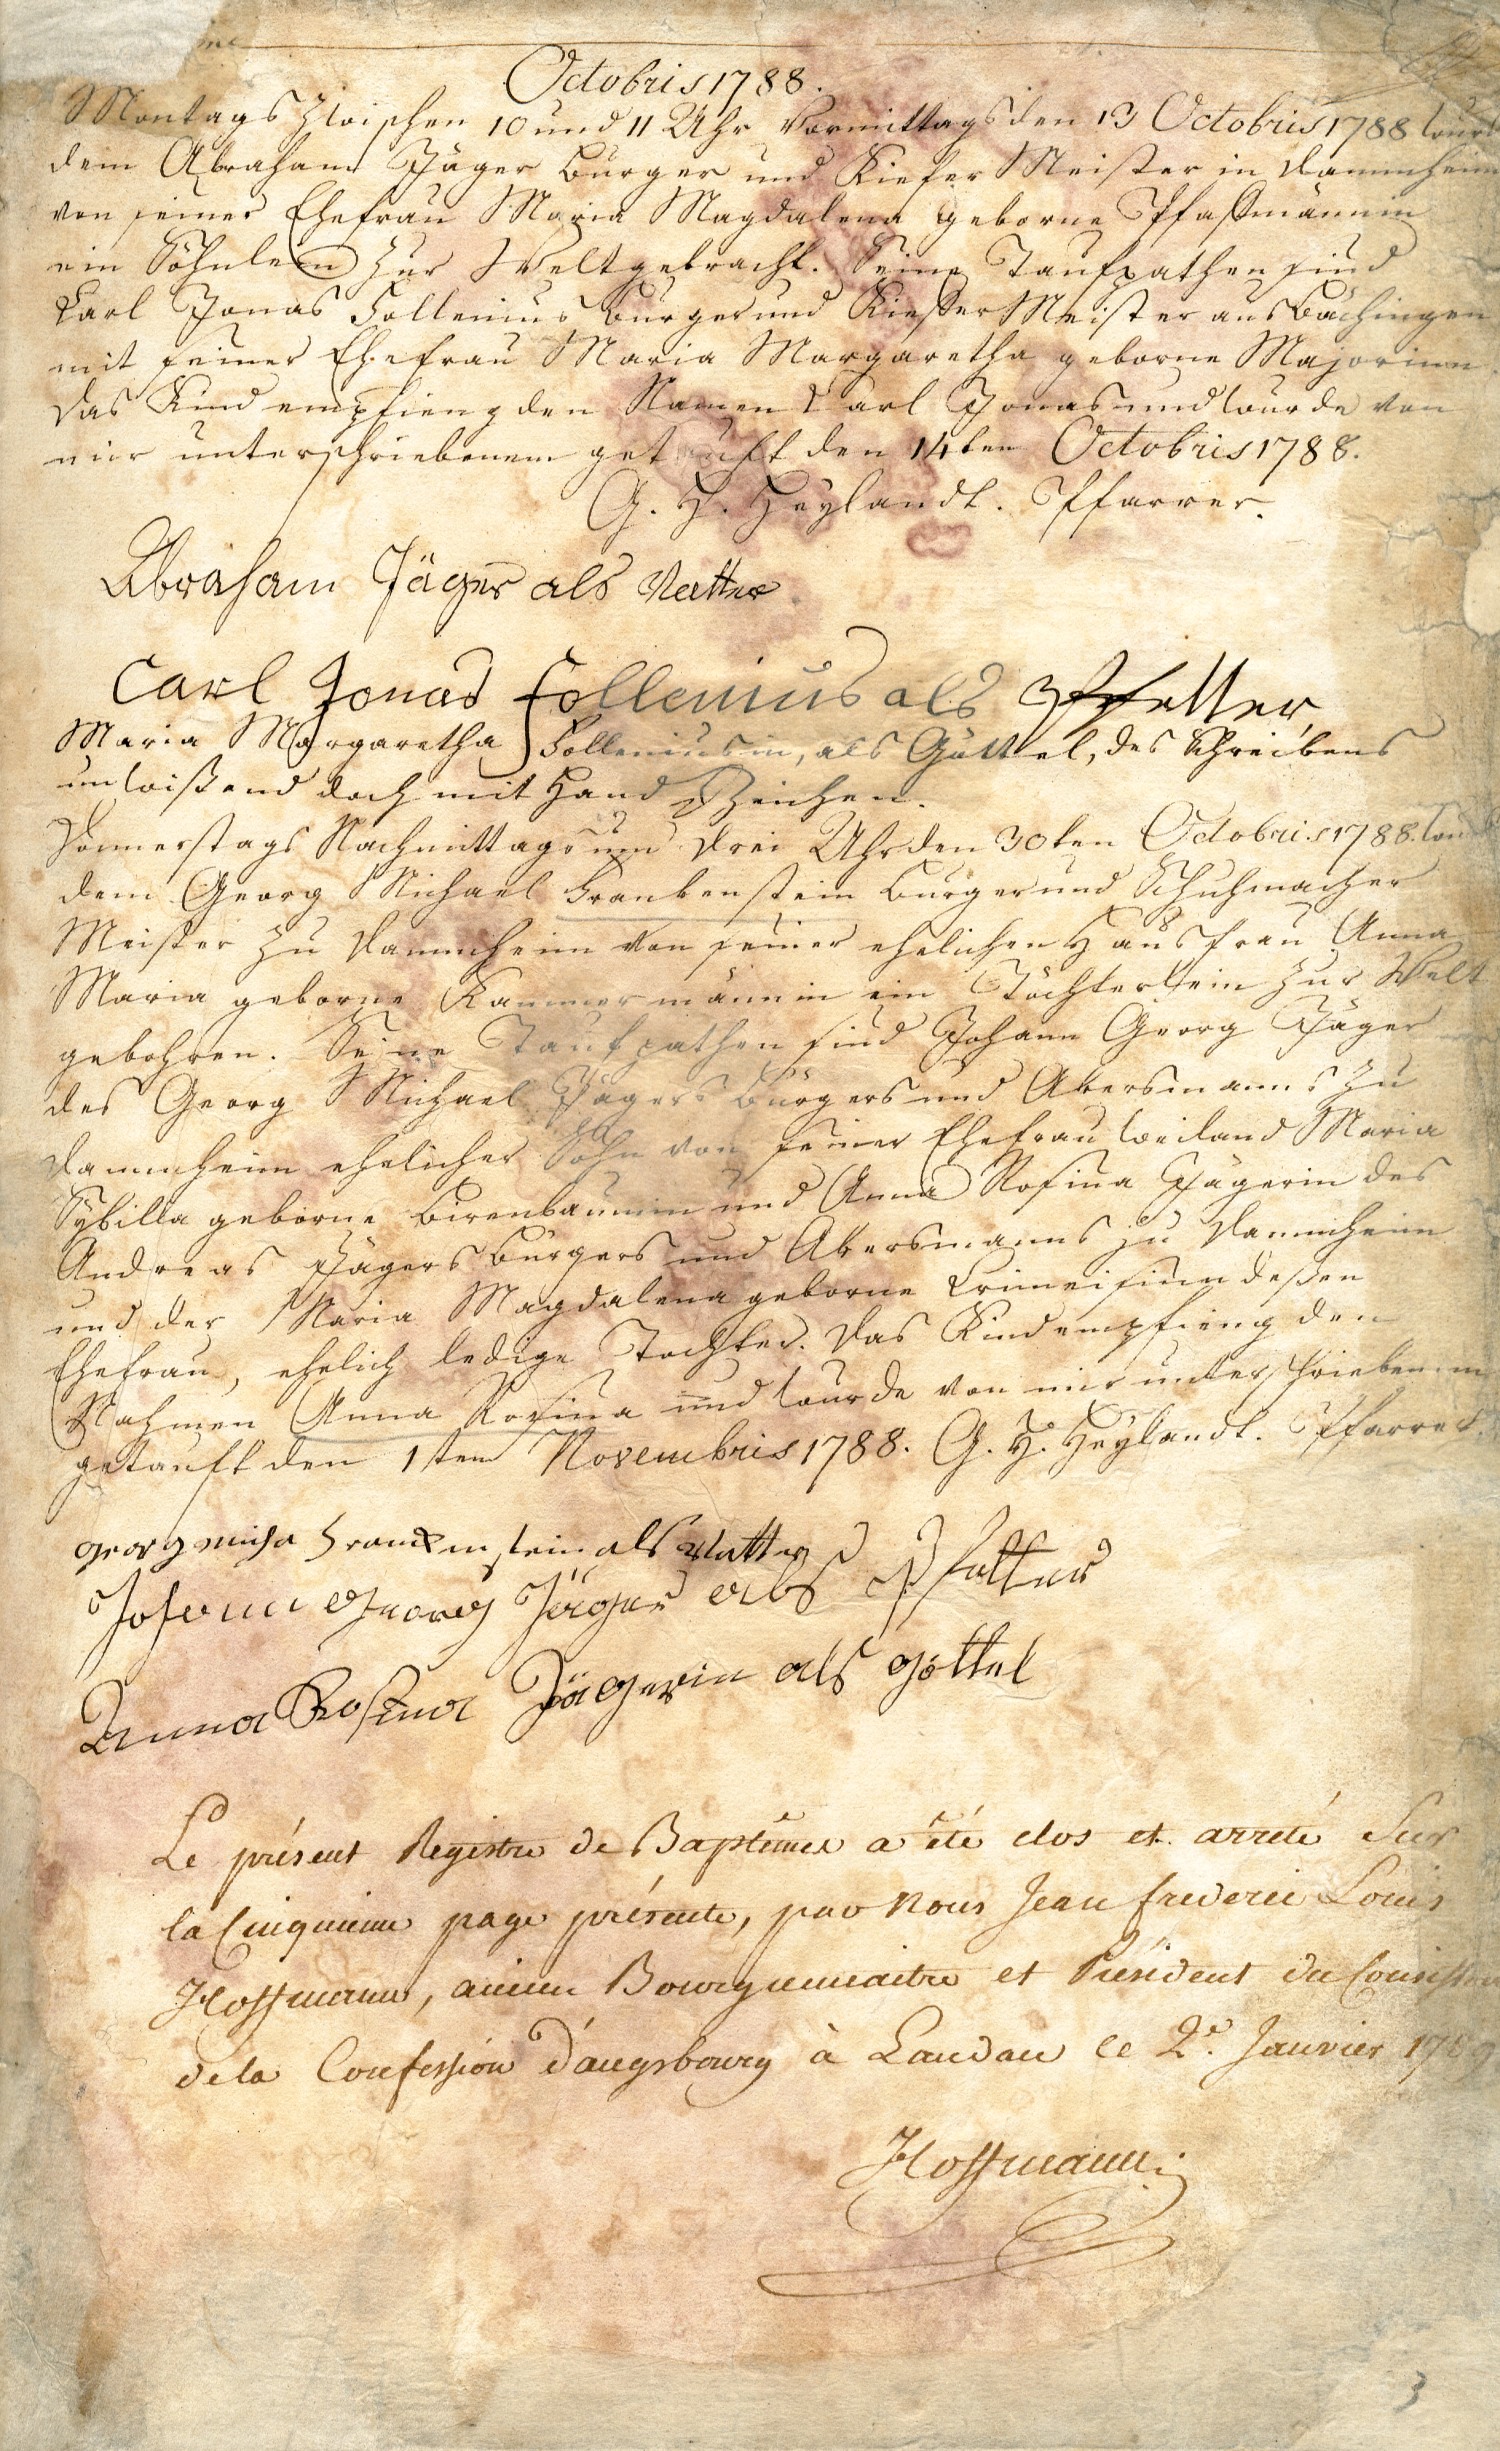 Octobris 1788.
Montags Zwischen 10 und 11 Uhr Vormittags den 13 Octobris 1788 wurd
dem Abraham Jäger Burger und Kiefer Meister in Dammheim
von seiner Ehefrau Maria Magdalena geborne Pfaßmännin
ein Söhnlein Zur Welt gebracht. Seine Taufpathen sind
Carl Jonas Follenius Burger und Kiefer Meister aus Bächingen
mit seiner Ehefrau Maria Margaretha geborne Majorinn.
Das Kind empfieng den Namen Carl Jonas und wurde von
mir unterschriebenem getauft den 14ten Octobris 1788.
G. H. Heylandt. Pfarrer.
Abraham Jäger als Vatter
Carl Jonas Follenius als Pfetter
Maria Margaretha Folleniusin, als Göttel, des Schreibens
unwißend doch mit Hand Zeichen.
Donnerstags Nachmittags um drei Uhr den 30ten Octobris 1788. wurd
dem Georg Michael Frankenstein Burger und Schuhmacher
Meister zu Dammheim von seiner ehelichen Hausfrau Anna
Maria geborne Kammermännin ein Töchterlein zur Welt
gebohren. Seine Taufpathen sind Johann Georg Jäger
des Georg Michael Jägers Bürgers und Akersmanns zu
Dammheim ehelicher Sohn von seiner Ehefrau weiland Maria
Sybilla geborne Birenbaumin und Anna Rosina Jägerin des
Andreas Jägers Bürgers und Akersmanns zu Dammheim
und der Maria Magdalena geborne deßen
Ehefrau, ehelich ledige Tochter. Das Kind empfieng den
Nahmen Anna Rosina und wurde von mir unterschriebenem
getauft den 1ten Novembris 1788. G. H. Heylandt. Pfarrer.
georg micha Franckenstein als Vatter
Johann Georg Jäger als Pfetter
Anna Rosina Jägerin als göttel
Le présent Registre de Baptême a été clos et arreté Sur
la Cinquieme page présente, par Nous Jean frederic Louis
Hoffmann, ancien Bourguemaitre et Président du Consistoire
de la Confession d'augsbourg à Landau le 2e. Janvier 1789
Hoffmann
3